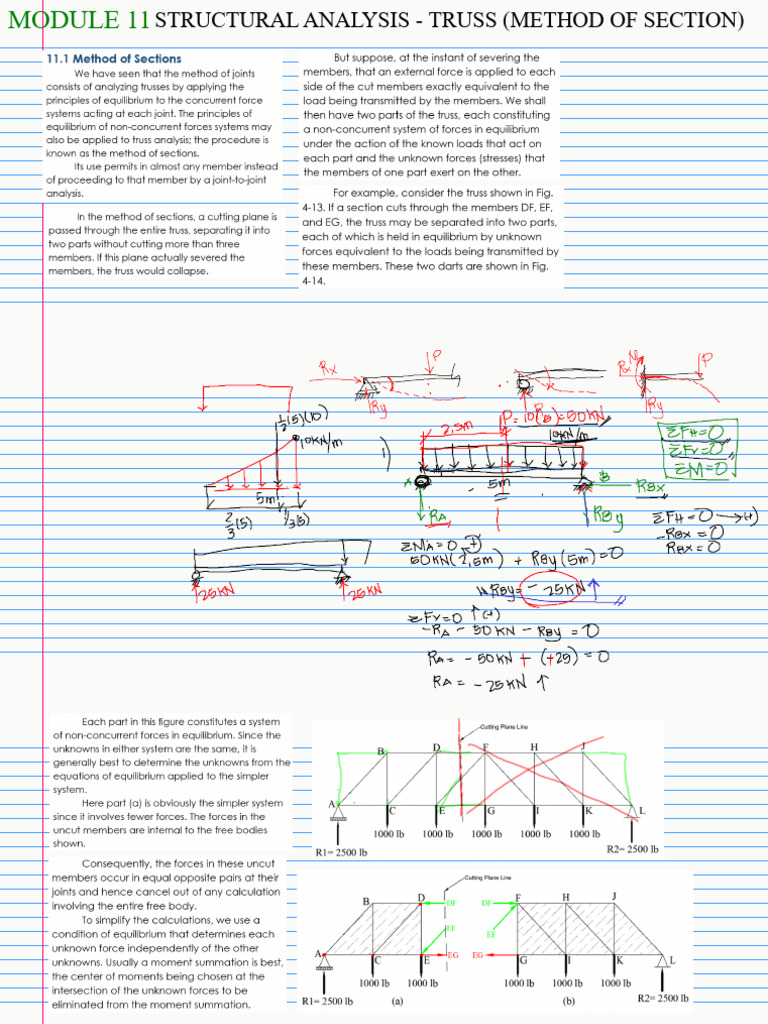 MODULE 11 STRUCTURAL ANALYSIS - TRUSS (METHOD OF SECTION)
11.1 Method of Sections
We have seen that the method of joints
consists of analyzing trusses by applying the
principles of equilibrium to the concurrent force
systems acting at each joint. The principles of
equilibrium of non-concurrent forces systems may
also be applied to truss analysis; the procedure is
known as the method of sections.
Its use permits in almost any member instead
of proceeding to that member by a joint-to-joint
analysis.
In the method of sections, a cutting plane is
passed through the entire truss, separating it into
two parts without cutting more than three
members. If this plane actually severed the
members, the truss would collapse.
But suppose, at the instant of severing the
members, that an external force is applied to each
side of the cut members exactly equivalent to the
load being transmitted by the members. We shall
then have two parts of the truss, each constituting
a non-concurrent system of forces in equilibrium
under the action of the known loads that act on
each part and the unknown forces (stresses) that
the members of one part exert on the other.
For example, consider the truss shown in Fig.
4-13. If a section cuts through the members DF, EF,
and EG, the truss may be separated into two parts,
each of which is held in equilibrium by unknown
forces equivalent to the loads being transmitted by
these members. These two darts are shown in Fig.
4-14.
Rx
P
Ry
R
Rx
M
P
Ry
1/2(5)(10)
10KN/m
5m
2/3(5)
1/3(5)
25KN
25KN
1)
2.5m
P=10(5)=50KN
10KN/m
A
5m
B
RBX
RA
RBy
ΣFH=0
ΣFV=0
ΣM=0
ΣFH=0 →(+)
-RBX=0
RBX=0
ΣMA=0 (+)
50KN(2.5m) + RBy(5m)=0
RBy= -25KN ↑
ΣFV=0 ↑(+)
-RA - 50KN - RBy = 0
RA= -50KN + (+25) = 0
RA = -25KN ↑
Each part in this figure constitutes a system
of non-concurrent forces in equilibrium. Since the
unknowns in either system are the same, it is
generally best to determine the unknowns from the
equations of equilibrium applied to the simpler
system.
Here part (a) is obviously the simpler system
since it involves fewer forces. The forces in the
uncut members are internal to the free bodies
shown.
Consequently, the forces in these uncut
members occur in equal opposite pairs at their
joints and hence cancel out of any calculation
involving the entire free body.
To simplify the calculations, we use a
condition of equilibrium that determines each
unknown force independently of the other
unknowns. Usually a moment summation is best,
the center of moments being chosen at the
intersection of the unknown forces to be
eliminated from the moment summation.
Cutting Plane Line
B D F H J
A C E G I K L
1000 lb 1000 lb 1000 lb 1000 lb 1000 lb
R1= 2500 lb R2= 2500 lb
Cutting Plane Line
B D DF DF F H J
EF EF
A C E EG EG G I K L
1000 lb 1000 lb 1000 lb 1000 lb 1000 lb
R1= 2500 lb (a) (b) R2= 2500 lb